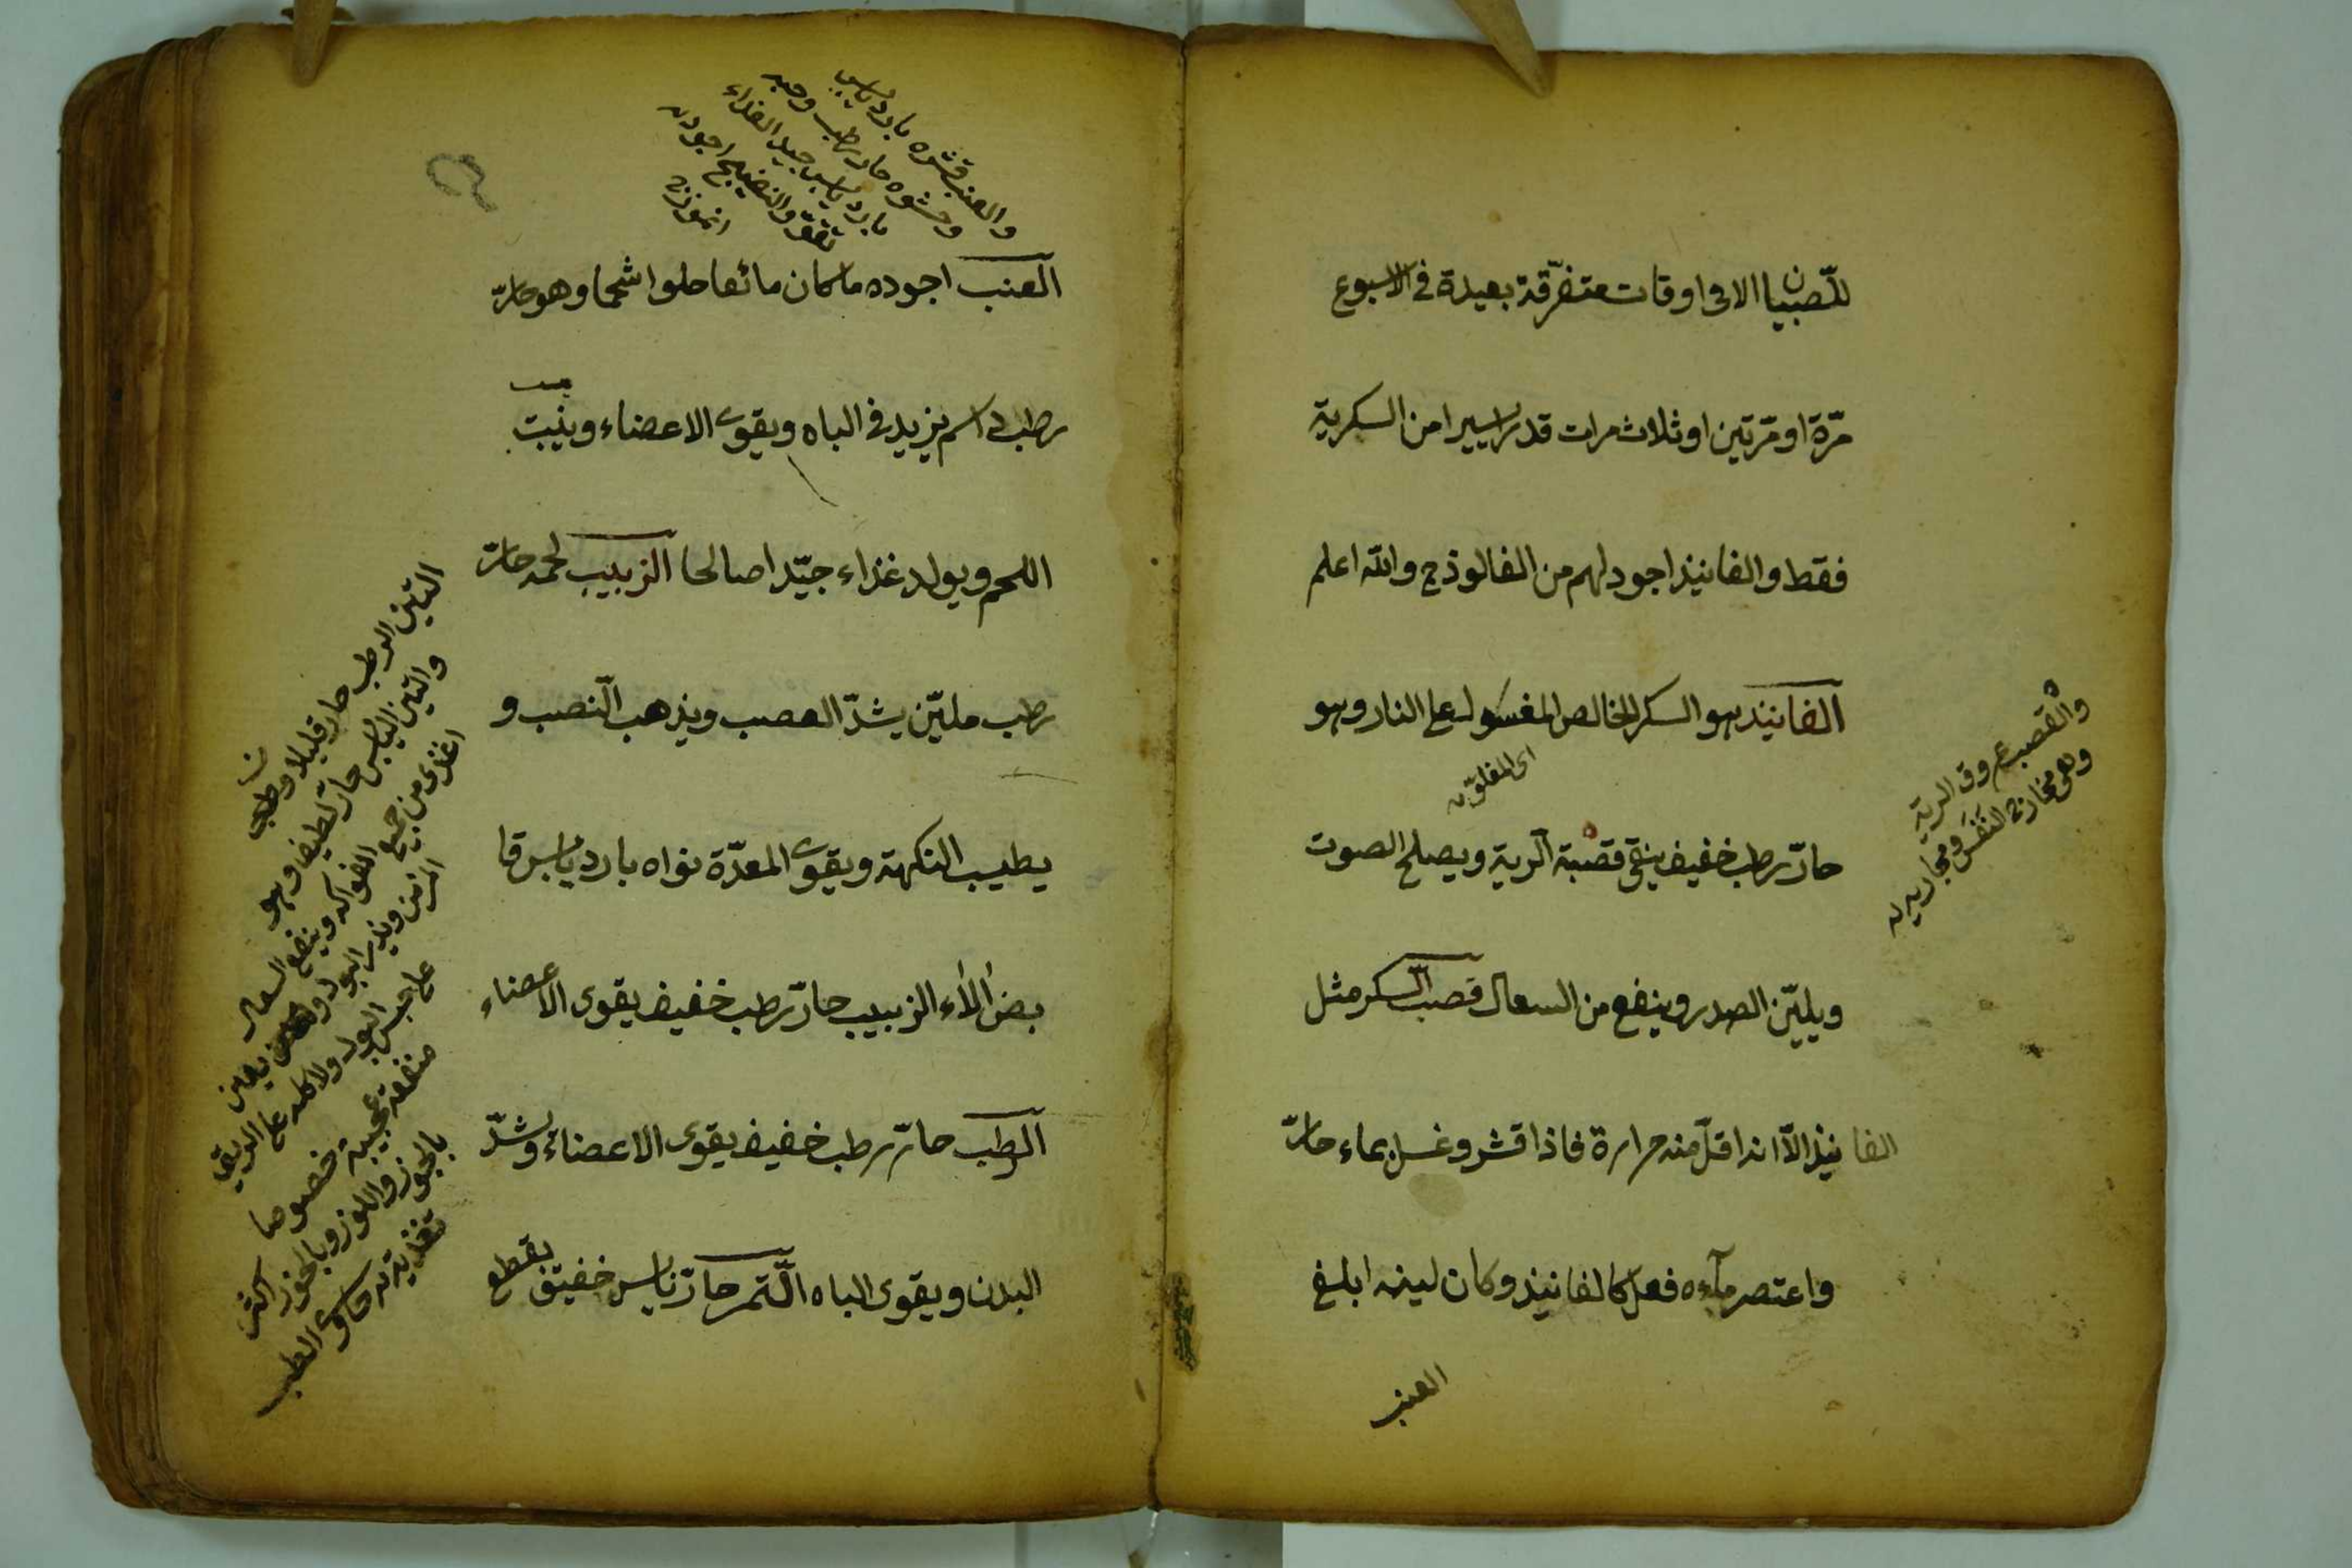 للصبيان الا فى اوقات متفرّقة بعيدة فى الاسبوع
مرّة او مرّتين او ثلاث مرات قدر يسيرا من السكرية
فقط والفانيذ اجود لهم من الفالوذج والله اعلم
الفانيذ هو السكر الخالص المغسول على النار وهو
اى المغلوّ
حارّ رطب خفيف ينقى قصبة الرية ويصلح الصوت
ويليّن الصدر وينفع من السعال قصب السكر مثل
الفانيذ الّا انه اقلّ منه حرارة فاذا قشر وغسل بماء حارّ
واعتصر مآءه فعل كالفانيذ وكان لينه ابلغ
العنب
والقصب عروق الرية
وهى مخارج النَفَس ومجاريه
والعنب قشره بارد يابس
وحشوه حار رطب وحبه
بارد يابس جيد الغذاء
والنضيج اجود
انموزج
العنب اجوده ما كان مائعا حلوا شحما وهو حارّ
رطب دسم يزيد فى الباه ويقوى الاعضاء وينبت
اللحم ويولد غذاء جيّدا صالحا الزبيب لحمه حارّ
رطب مليّن يشدّ العصب ويذهب النصب و
يطيب النكهة ويقوى المعدّة نواه بارد يابس قا
بض الّاء الزبيب حارّ رطب خفيف يقوى الاعضاء
الرطب حارّ رطب خفيف يقوى الاعضاء ويشدّ
البدن ويقوى الباه التّمر حارّ يابس خفيق يقطع
التين الرطب حار قليلا رطب
والتين اليابس حارّ لطيف وهو
اغذى من جميع الفواكه وينفع السعال
المزمن ويدر البول يعين
على حبس البول ولاكله على الريق
منفعة عجيبة خصوصا
بالجوز واللوز وبالجوز اكثر
تغذية حاوى الطب